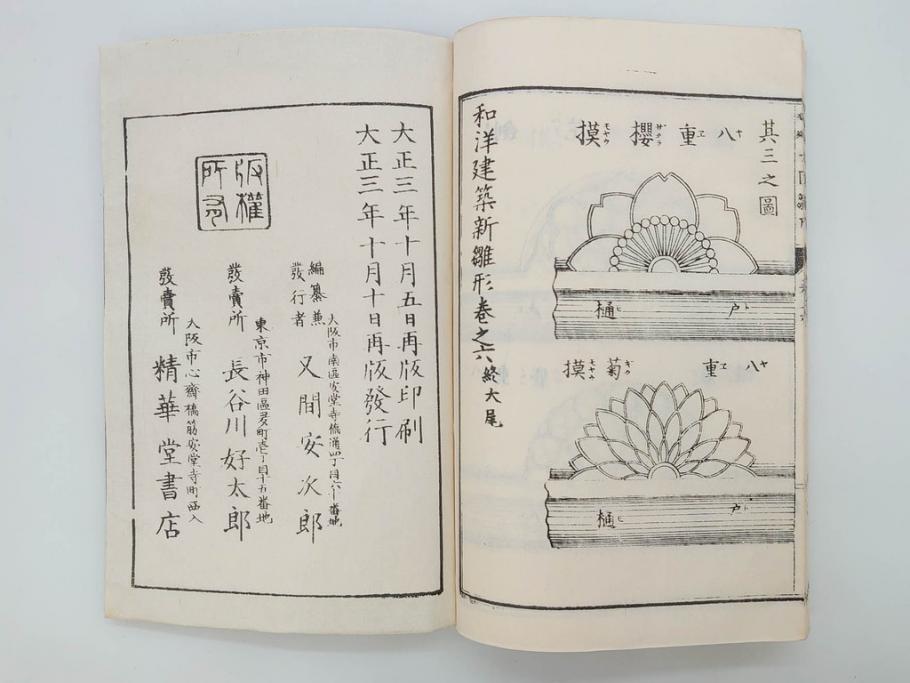 其三之圖
八重櫻摸
ヤエザクラモヤウ
戸樋
トヒ
八重菊摸
ヤエギクモヤウ
戸樋
トヒ
和洋建築新雛形卷之六終大尾
大正三年十月五日再版印刷
大正三年十月十日再版發行
版權所有
編纂兼發行者
大阪市南區安堂寺橋通四丁目六十番地
又間安次郎
發賣所
東京市神田區多町壱丁目十五番地
長谷川好太郎
發賣所
大阪市心齋橋筋安堂寺町西入
精華堂書店